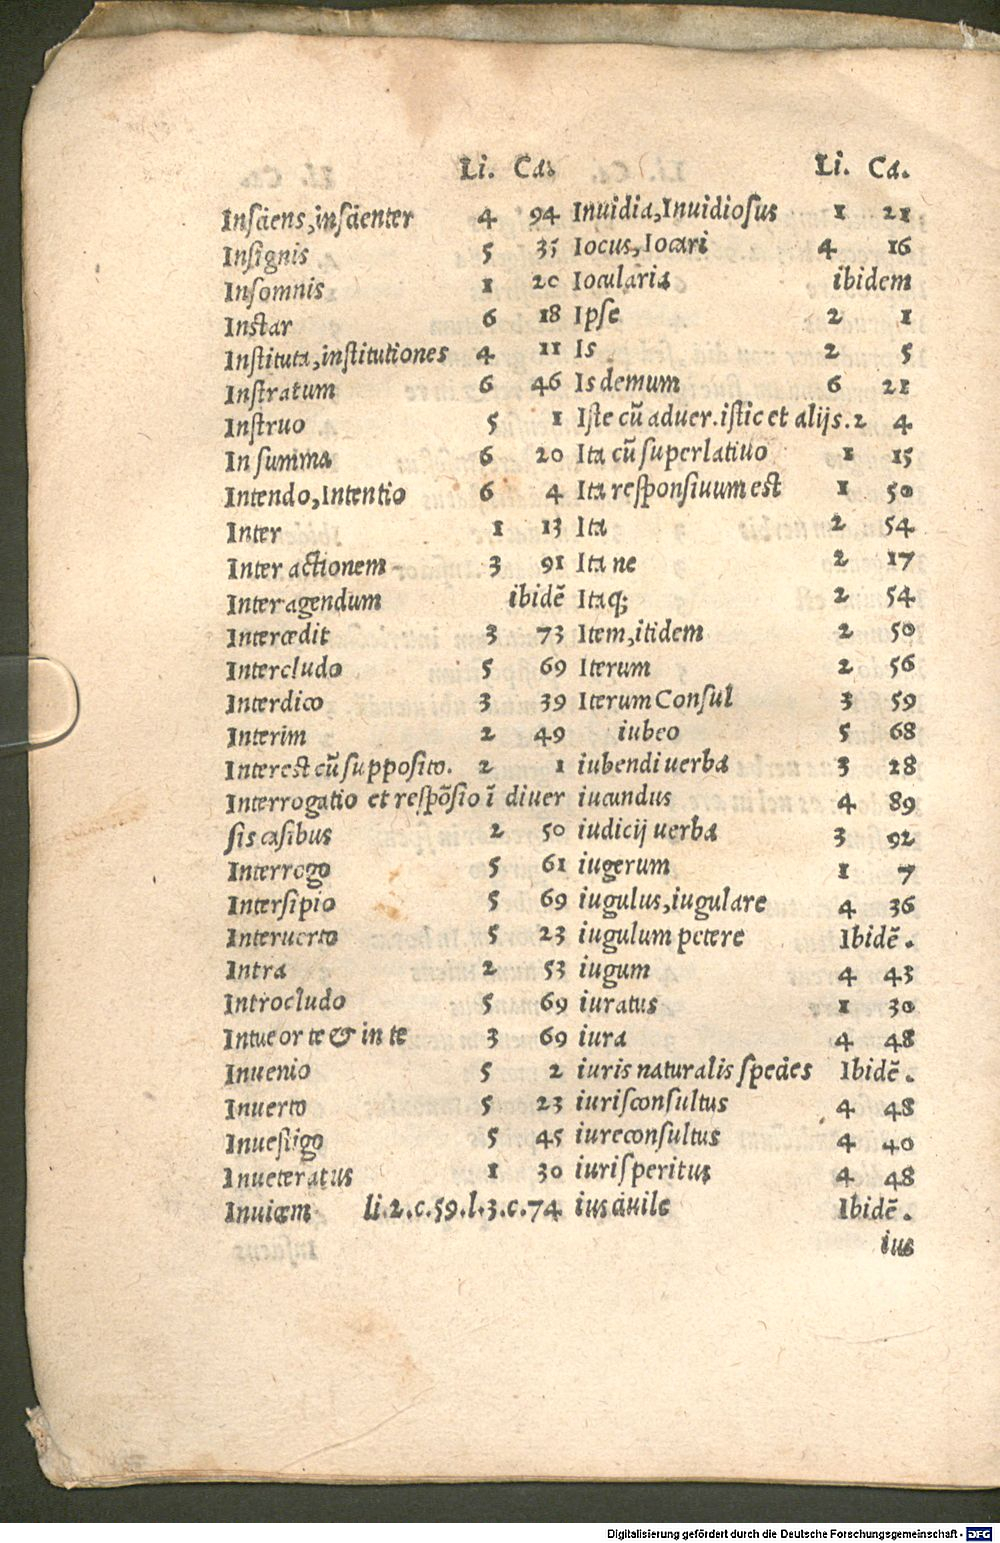 Li. Ca.
Insciens, inscienter 4 94
Insignis 5 35
Insomnis 1 20
Instar 6 18
Instituta, institutiones 4 11
Instratum 6 46
Instruo 5 1
In summa 6 20
Intendo, Intentio 6 4
Inter 1 13
Inter actionem 3 91
Inter agendum ibidē
Intercedit 3 73
Intercludo 5 69
Interdico 3 39
Interim 2 49
Interest cū supposito. 2 1
Interrogatio et respōsio ī diuer
sis casibus 2 50
Interrogo 5 61
Intersipio 5 69
Interuerto 5 23
Intra 2 53
Introcludo 5 69
Intueor te & in te 3 69
Inuenio 5 2
Inuerto 5 23
Inuestigo 5 45
Inueteratus 1 30
Inuicem li.2.c.59.l.3.c.74
Li. Ca.
Inuidia, Inuidiosus 1 21
Iocus, Iocari 4 16
Iocularia ibidem
Ipse 2 1
Is 2 5
Is demum 6 21
Iste cū aduer. istic et alijs. 2 4
Ita cū superlatiuo 1 15
Ita responsiuum est 1 50
Ita 2 54
Ita ne 2 17
Itaq; 2 54
Item, itidem 2 50
Iterum 2 56
Iterum Consul 3 59
iubeo 5 68
iubendi uerba 3 28
iucundus 4 89
iudicij uerba 3 92
iugerum 1 7
iugulus, iugulare 4 36
iugulum petere Ibidē.
iugum 4 43
iuratus 1 30
iura 4 48
iuris naturalis species Ibidē.
iurisconsultus 4 48
iureconsultus 4 40
iurisperitus 4 48
ius ciuile Ibidē.
ius
Digitalisierung gefördert durch die Deutsche Forschungsgemeinschaft - DFG